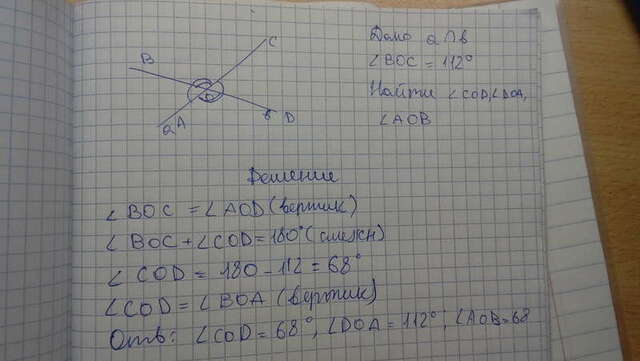 C
B
O
a A
в D
Дано a ∩ в
∠BOC = 112°
Найти ∠COD, ∠DOA,
∠AOB
Решение
∠ BOC = ∠ AOD (вертик)
∠ BOC + ∠ COD = 180° (смежн)
∠ COD = 180 - 112 = 68°
∠ COD = ∠ BOA (вертик)
Отв: ∠ COD = 68°, ∠ DOA = 112°; ∠ AOB = 68